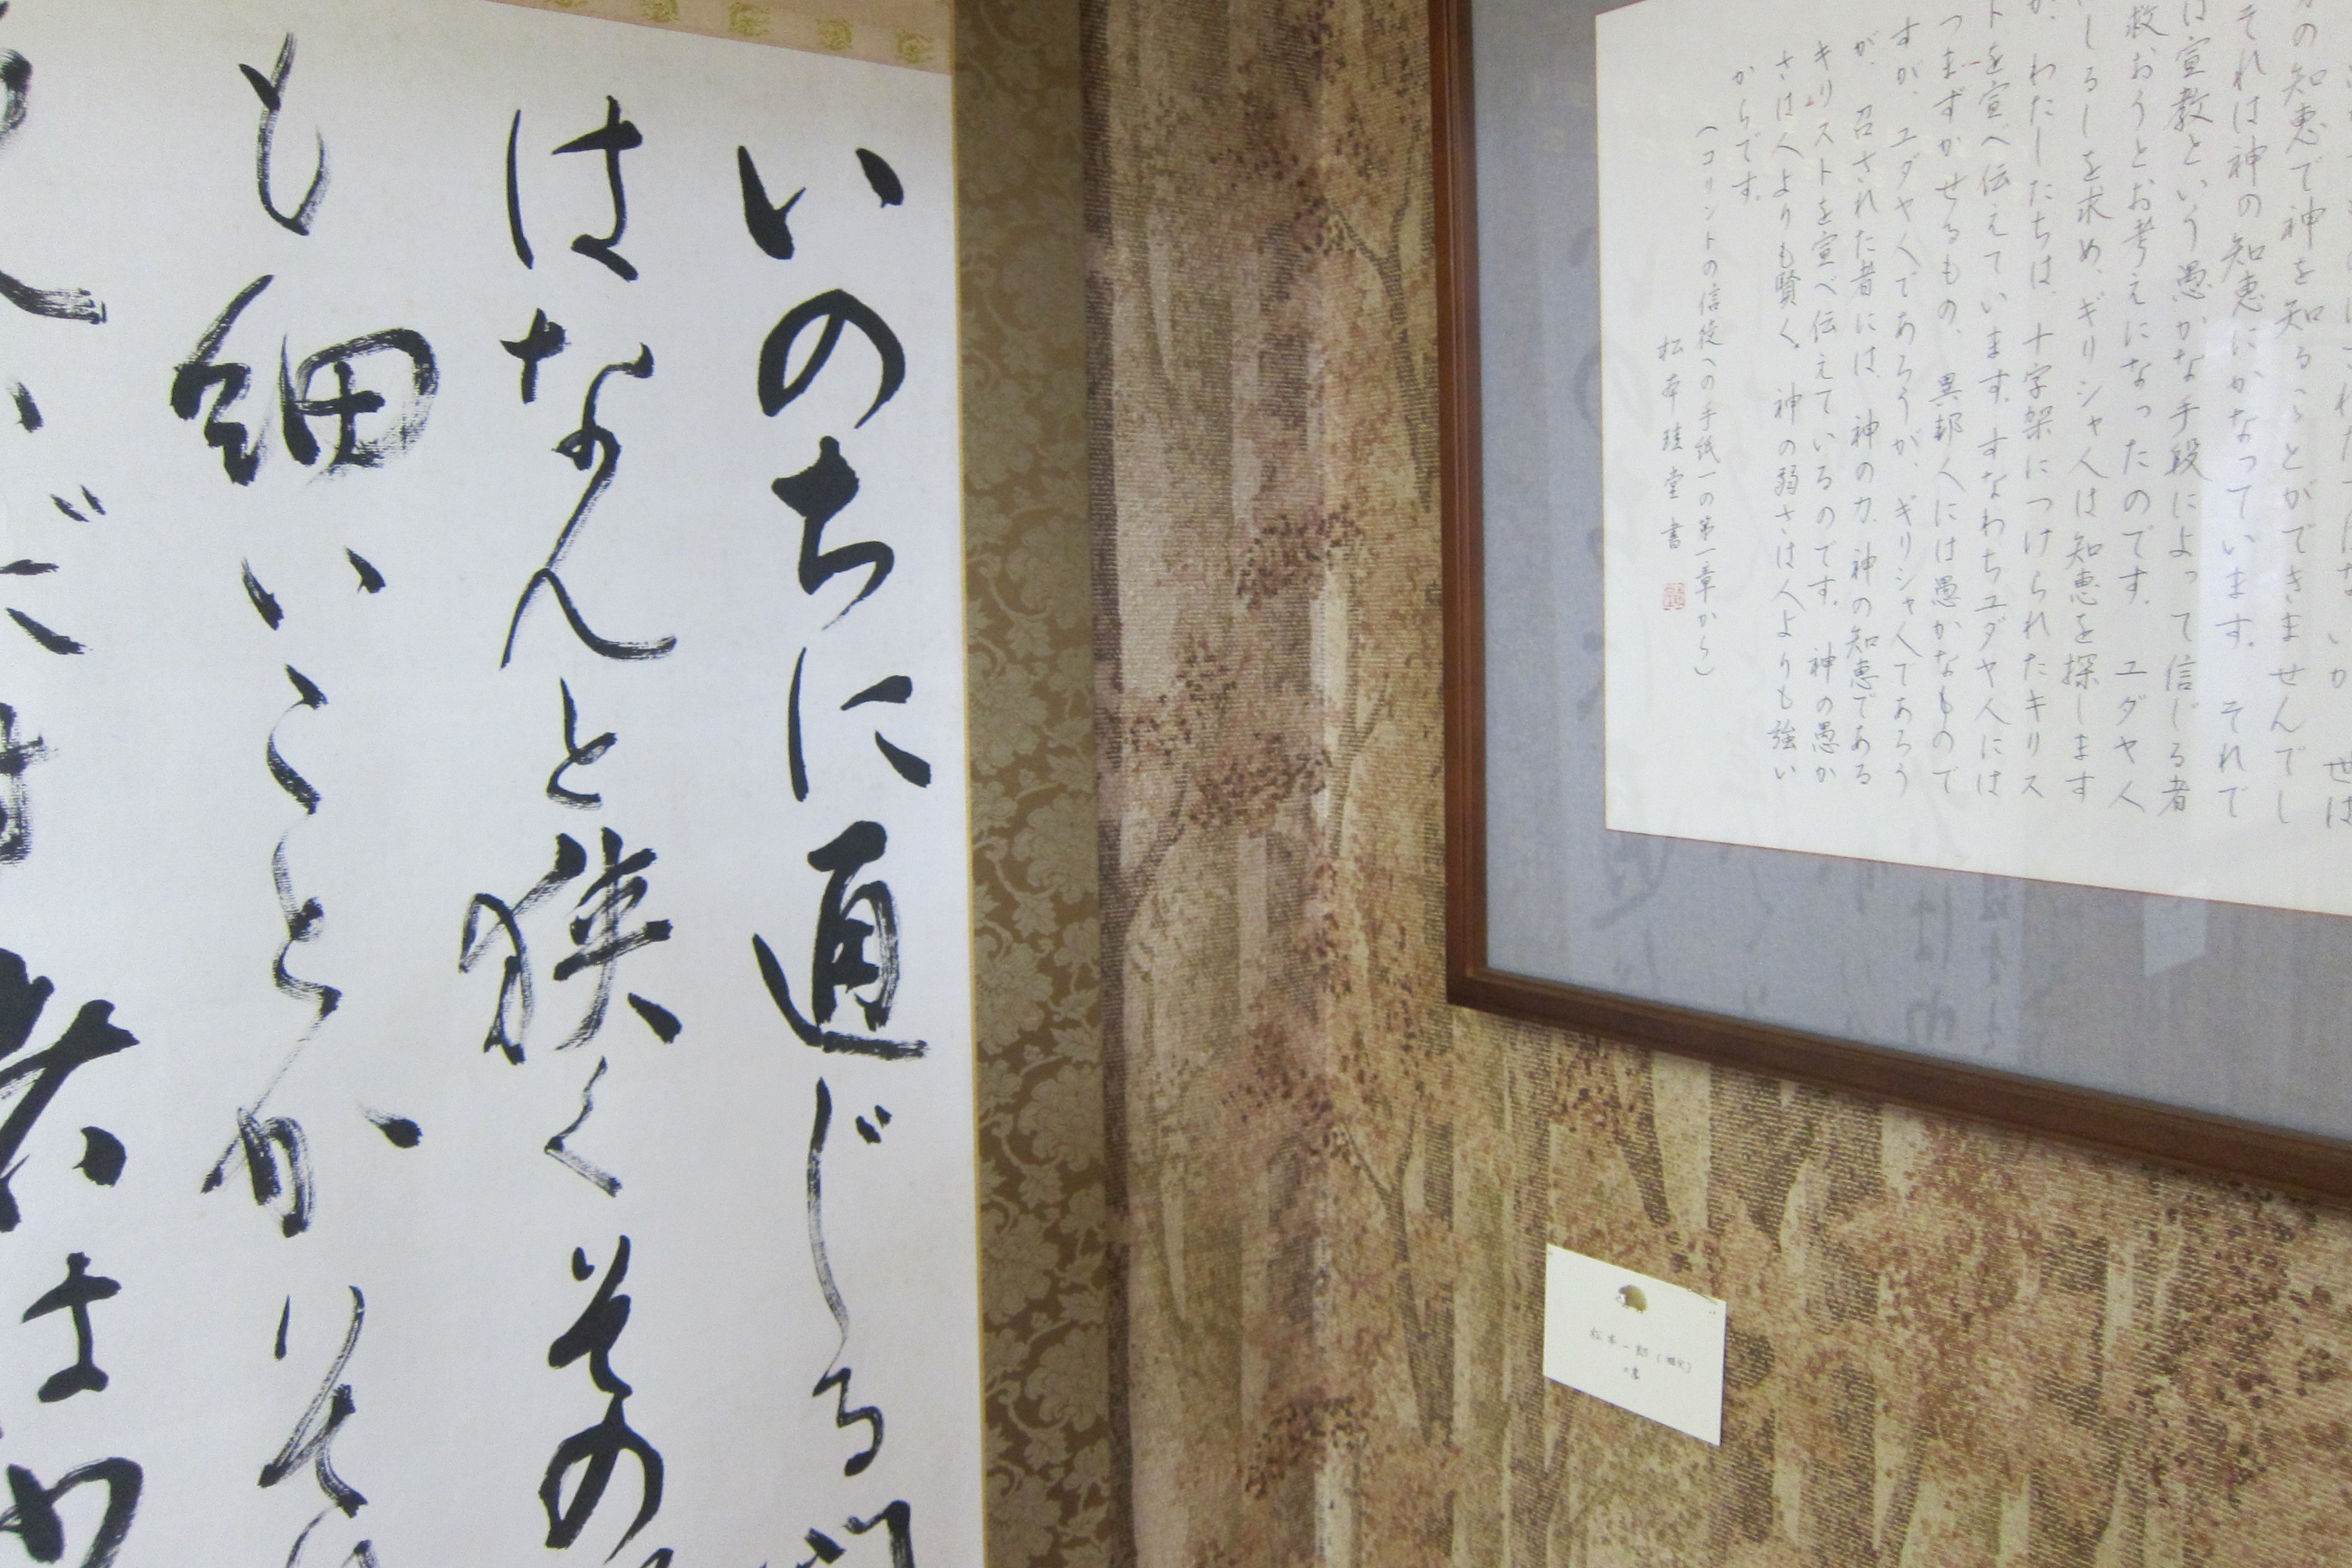 いのちに通じる門
はなんと狭くその
も細いことかそれ
だけ
知恵で神を知ることができませんでし
それは神の知恵にかなっています。それで
は宣教という愚かな手段によって信じる者
救おうとお考えになったのです。ユダヤ人
しるしを求め、ギリシャ人は知恵を探します
が、わたしたちは、十字架につけられたキリス
トを宣べ伝えています。すなわちユダヤ人には
つまずかせるもの、異邦人には愚かなもので
すが、ユダヤ人であろうが、ギリシャ人であろう
が、召された者には、神の力、神の知恵である
キリストを宣べ伝えているのです。神の愚か
さは人よりも賢く、神の弱さは人よりも強い
からです。
(コリントの信徒への手紙一の第一章から)
松本 堂書
松本一郎(祖父)
の書